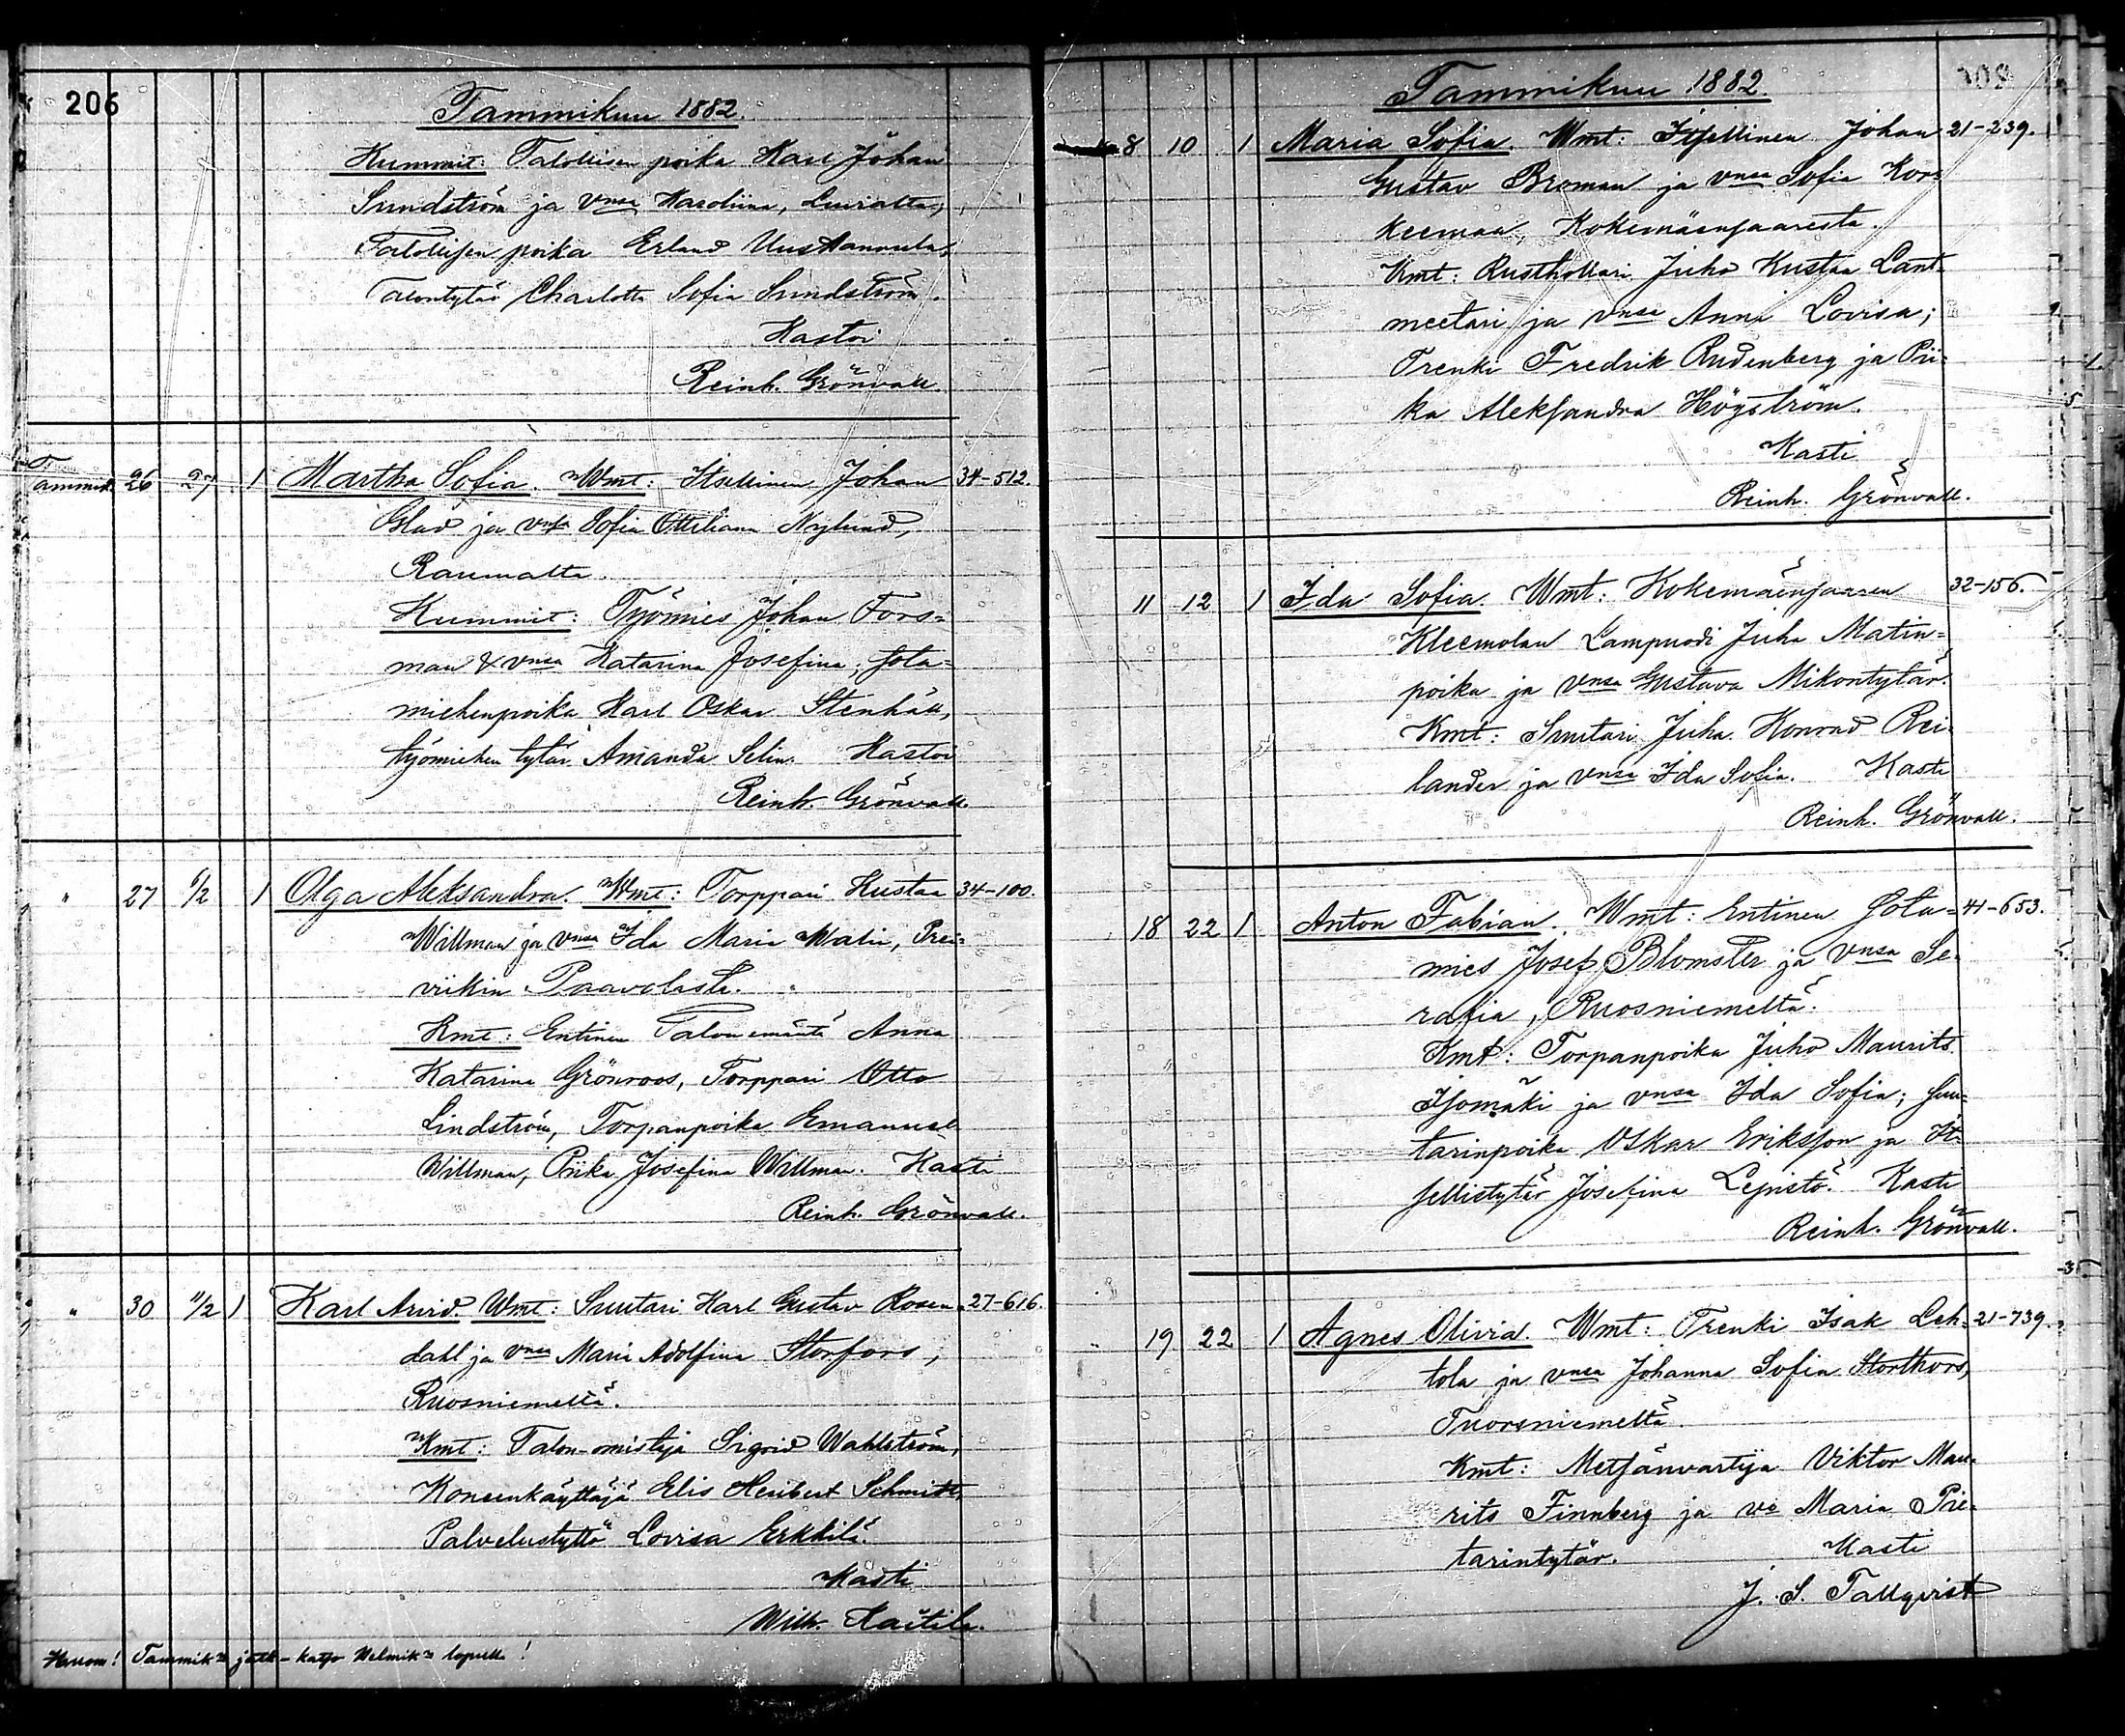 206
Tammikuu 1882.
Kummit: Talollisen poika Karl Johan
Sundström ja vnsa Karoliina, Luviatta;
Talollisen poika Erland Uusitannula,
Talontytär Charlotta Sofia Sundström.
Kastoi
Reinh. Grönvall.
Tammik. 26 27 1 Martha Sofia. Wmt: Itsellinen Johan 34-512.
Glad ja vnsa Sofia Ottiliana Nylund,
Raumalta.
Kummit: Työmies Johan Fors-
man & vnsa Katarina Josefina, sota-
miehenpoika Karl Oskar Stenhäll,
työmiehen tytär Amanda Selin. Kastoi
Reinh. Grönvall.
" 27 6/2 1 Olga Aleksandra. Wmt: Torppari Kustaa 34-100.
Willman ja vnsa Ida Maria Malin, Prei-
viikin Paavolasta.
Kmt: Entinen Talonemäntä Anna
Katarina Grönroos, Torppari Otto
Lindström, Torpanpoika Emanuel
Willman, Piika Josefina Willman. Kasti
Reinh. Grönvall.
" 30 11/2 1 Karl Arvid. Wmt: Suutari Karl Gustav Rosen- 27-616.
dahl ja vnsa Maria Adolfina Storfors,
Ruosniemeltä.
Kmt: Talon-omistaja Sigrid Wahlström,
Koneenkäyttäjä Elis Heribert Schmidt,
Palvelustyttö Lovisa Erkkilä.
Kasti
Wilh. Kaitila.
Huom! Tammik:n jatk- katso Helmik:n lopulla!
Tammikuu 1882.
8 10 1 Maria Sofia. Wmt: Itsellinen Johan 21-239.
Gustav Broman ja vnsa Sofia Kor-
keemaa, Kokemäensaaresta.
Kmt: Rusthollari Juho Kustaa Lant-
meetari ja vnsa Anna Lovisa;
Trenki Fredrik Rudenberg ja Pii-
ka Aleksandra Högström.
Kasti
Reinh. Grönvall.
11 12 1 Ida Sofia. Wmt: Kokemäensaaren 32-156.
Kleemolan Lampuodi Juha Matin-
poika ja vnsa Gustava Mikontytär.
Kmt: Suutari Juha Konrad Rei-
lander ja vnsa Ida Sofia. Kasti
Reinh. Grönvall.
18 22 1 Anton Fabian. Wmt: Entinen Sota- 41-653.
mies Josef Blomster ja vnsa Se-
rafia, Ruosniemeltä.
Kmt: Torpanpoika Juho Maurits
Isomäki ja vnsa Ida Sofia; suu-
tarinpoika Oskar Eriksson ja It-
sellistytär Josefina Lepistö. Kasti
Reinh. Grönvall.
" 19 22 1 Agnes Olivia. Wmt: Trenki Isak Leh- 21-739.
tola ja vnsa Johanna Sofia Storthors,
Tuorsniemeltä.
Kmt: Metsänvartija Viktor Mau-
rits Finnberg ja vo Maria Pie-
tarintytär. Kasti
J. S. Tallqvist